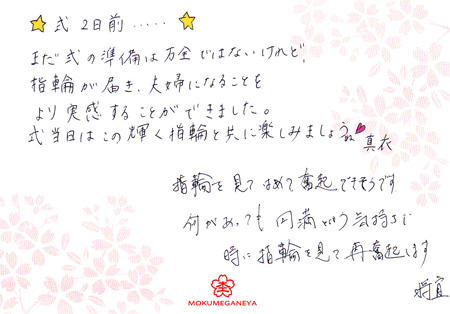 式 2日前‥‥‥
まだ式の準備は万全ではないけれど、
指輪が届き、夫婦になることを
より実感することができました。
式当日はこの輝く指輪と共に楽しみましょうね
真衣
指輪を見て 改めて奮起できそうです
何があっても 円満という気持ちで
時に指輪を見て再奮起します
MOKUMEGANEYA